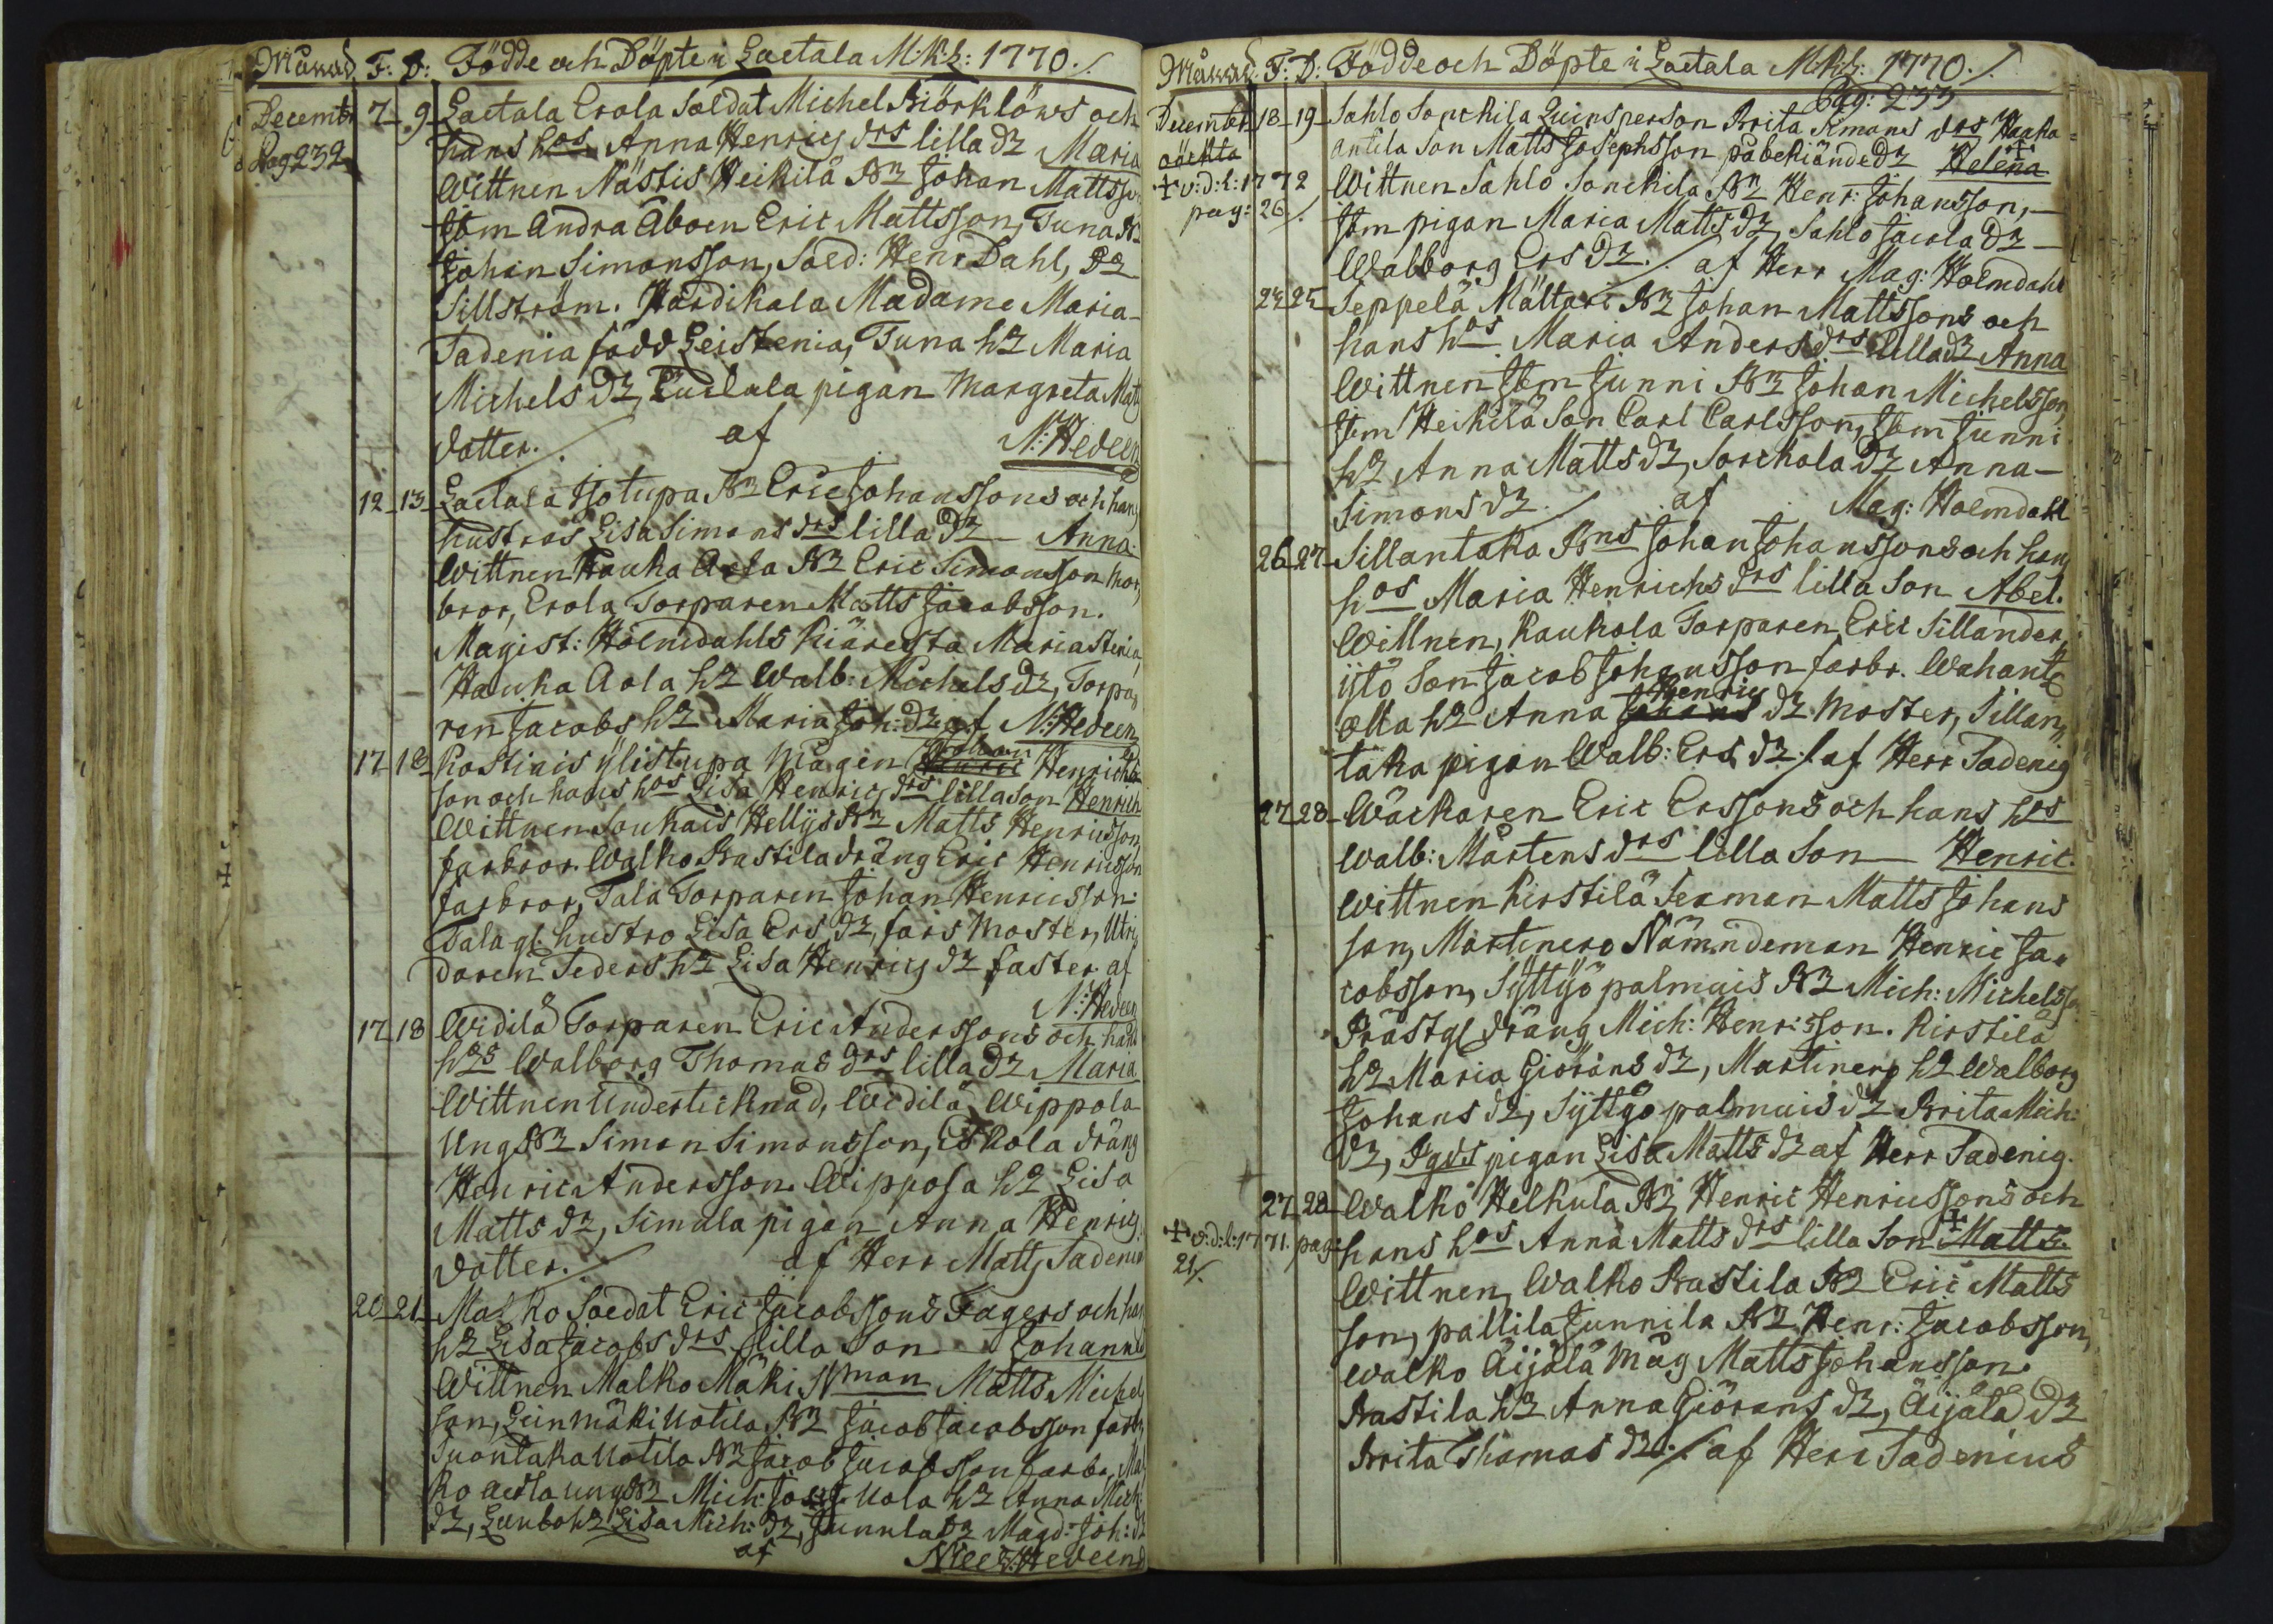 Månad. F: D: Födde och Döpte i Laetala M:K:L: 1770./.
Decembr 7 9 Laetala Erola Soldat Michel Biörklöws och
Pag 232 hans hos Anna Henrics drs lilla dr Maria
Wittnen Nästis Heikilä Br Johan Mattsson
Jtem Andra Åboen Eric Mattsson, Tuna Br
Johan Simonsson, Sold: Henr Dahl, Do
Sillström. Hardikala Madame Maria
Tadenia född Leistenia, Tuna hr Maria
Michels dr, pigan Margreta Matts
dotter./. af N: Hedeen
12 13 Laetala Isotupa Br Eric Johanssons och hans
hustros Lisa Simons drs lilla dr Anna
Wittnen Kauka Br Eric Simonsson Mor
bror, Erola Torparen Matts Jacobsson.
Magist: Holmdahls Kiäresta Maria Stenia,
Hauka Aola hr Walb: Michels dr, Torpa
ren Jacobs hr Maria Joh: dr af N: Hedeen
17 18 Kostiais ylistupa Mågen Johan Henrichs
son och hans hos Lisa Henrics drs lilla son Henrich
Wittnen Souhais Hellys Br Matts Henricsson
farbror. Walko Rastila dräng Eric Henricsson
farbror, Tala Torparen Johan Henricsson:
Tala gl: hustro Lisa Ers dr, fars Moster, Utri
daren Seders hr Lisa Henrics dr faster af
N: Hedeen
17 18 Widilä Torparen Eric Anderssons och hans
hos Walborg Thomas drs lilla dr Maria
Wittnen Undertecknad, Widilä Wippola
Ungs Br Simon Simonsson, Eskola dräng
Henric Andersson. Wipposa hr Lisa
Matts dr, Simula pigan Anna Henrics
dotter./. af Herr Matts Tadenius
20 21 Malko Soldat Eric Jacobssons Fagers och hans
hr Lisa Jacobs drs lilla Son Johannes
Wittnen Malko Mäki Nman Matts Michels
son, Leinmäki Uotila Br Jacob Jacobsson farbr
Suontaka Uotila Br Jacob Jacobsson farbr, Mal
ko ungs Br Mich: Uola hr Anna Mich:
dr, Lunbo hr Lisa Mich: dr, Junnila dr Magd: Joh: dr
af Hedeen
Månad. F: D: Födde och Döpte i Laetala M:K:L: 1770./.
Pag: 233
Decembr 18 19 Sahlo Sonckila Quinsperson Brita Simons drs Hauka
oäckta antila Son Matts Josephsson påbekiände dr Helena
+ v: d: l: 1772 Wittnen Sahlo Sonckila Br Henr: Johansson,
pag: 26/. Jtem pigan Maria Matts dr, Sahlo Jacola dr
Walborg Ers dr./. af Herr Mag: Holmdahl
24 25 Seppelä Mältari Br Johan Mattssons och
hans hos Maria Anders drs lilla dr Anna
Wittnen Jtem Junni Br Johan Michelsson,
Jtem Heikilä Son Carl Carlsson, Jtem Junni
hr Anna Matts dr, Sorckola dr Anna
Simons dr./. af Mag: Holmdahl
26 27 Sillantaka Bns Johan Johanssons och hans
hos Maria Henrichs drs lilla Son Abel.
Wittnen, Kaukola Torparen Eric Sillander,
ijstö Son Jacob Johansson farbr. Wahante
alla hr Anna Henrics dr Moster, Sillan
taka pigan Walb: Ers dr./. af Herr Tadenig
27 28 Wäckaren Eric Erssons och hans hos
Walb: Mårtens drs lilla Son Henric
Wittnen Kirstilä Sexman Matts Johans
son, Martinero Nämndeman Henric Ja
cobsson, Syttyö palmuis Br Mich: Michelsson
Prästg dräng Mich: Henricsson. Kirstilä
hr Maria Giörans dr, Martinero hr Walborg
Johans dr, Syttyö palmuis dr Brita Mich:
dr, Pgds pigan Lisa Matts dr af Herr Tadenig.
27 28 Walko Helkula Br Henric Henricssons och
+ v: d: l: 1771. pag: hans hos Anna Matts drs lilla Son + Matts.
21/.
Wittnen, Walko Rastila Br Eric Matts
son, pallila Junnila Br Henr: Jacobsson,
Walko Äijälä Måg Matts Johansson.
Rastila hr Anna Giörans dr, Äijälä dr
Brita Thomas dr./. af Herr Tadenius